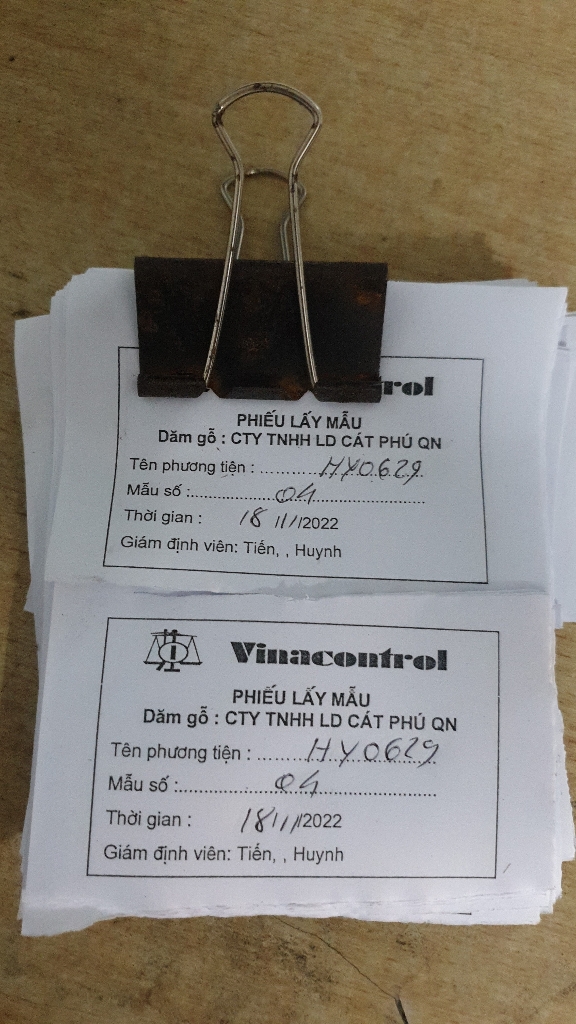 rol
PHIẾU LẤY MẪU
Dăm gỗ : CTY TNHH LD CÁT PHÚ QN
Tên phương tiện : ............HY0629
Mẫu số :................04........................
Thời gian : 18/11/2022
Giám định viên: Tiến, , Huynh
Vinacontrol
PHIẾU LẤY MẪU
Dăm gỗ : CTY TNHH LD CÁT PHÚ QN
Tên phương tiện : ..........HY0629
Mẫu số :................04........................
Thời gian : 18/11/2022
Giám định viên: Tiến, , Huynh